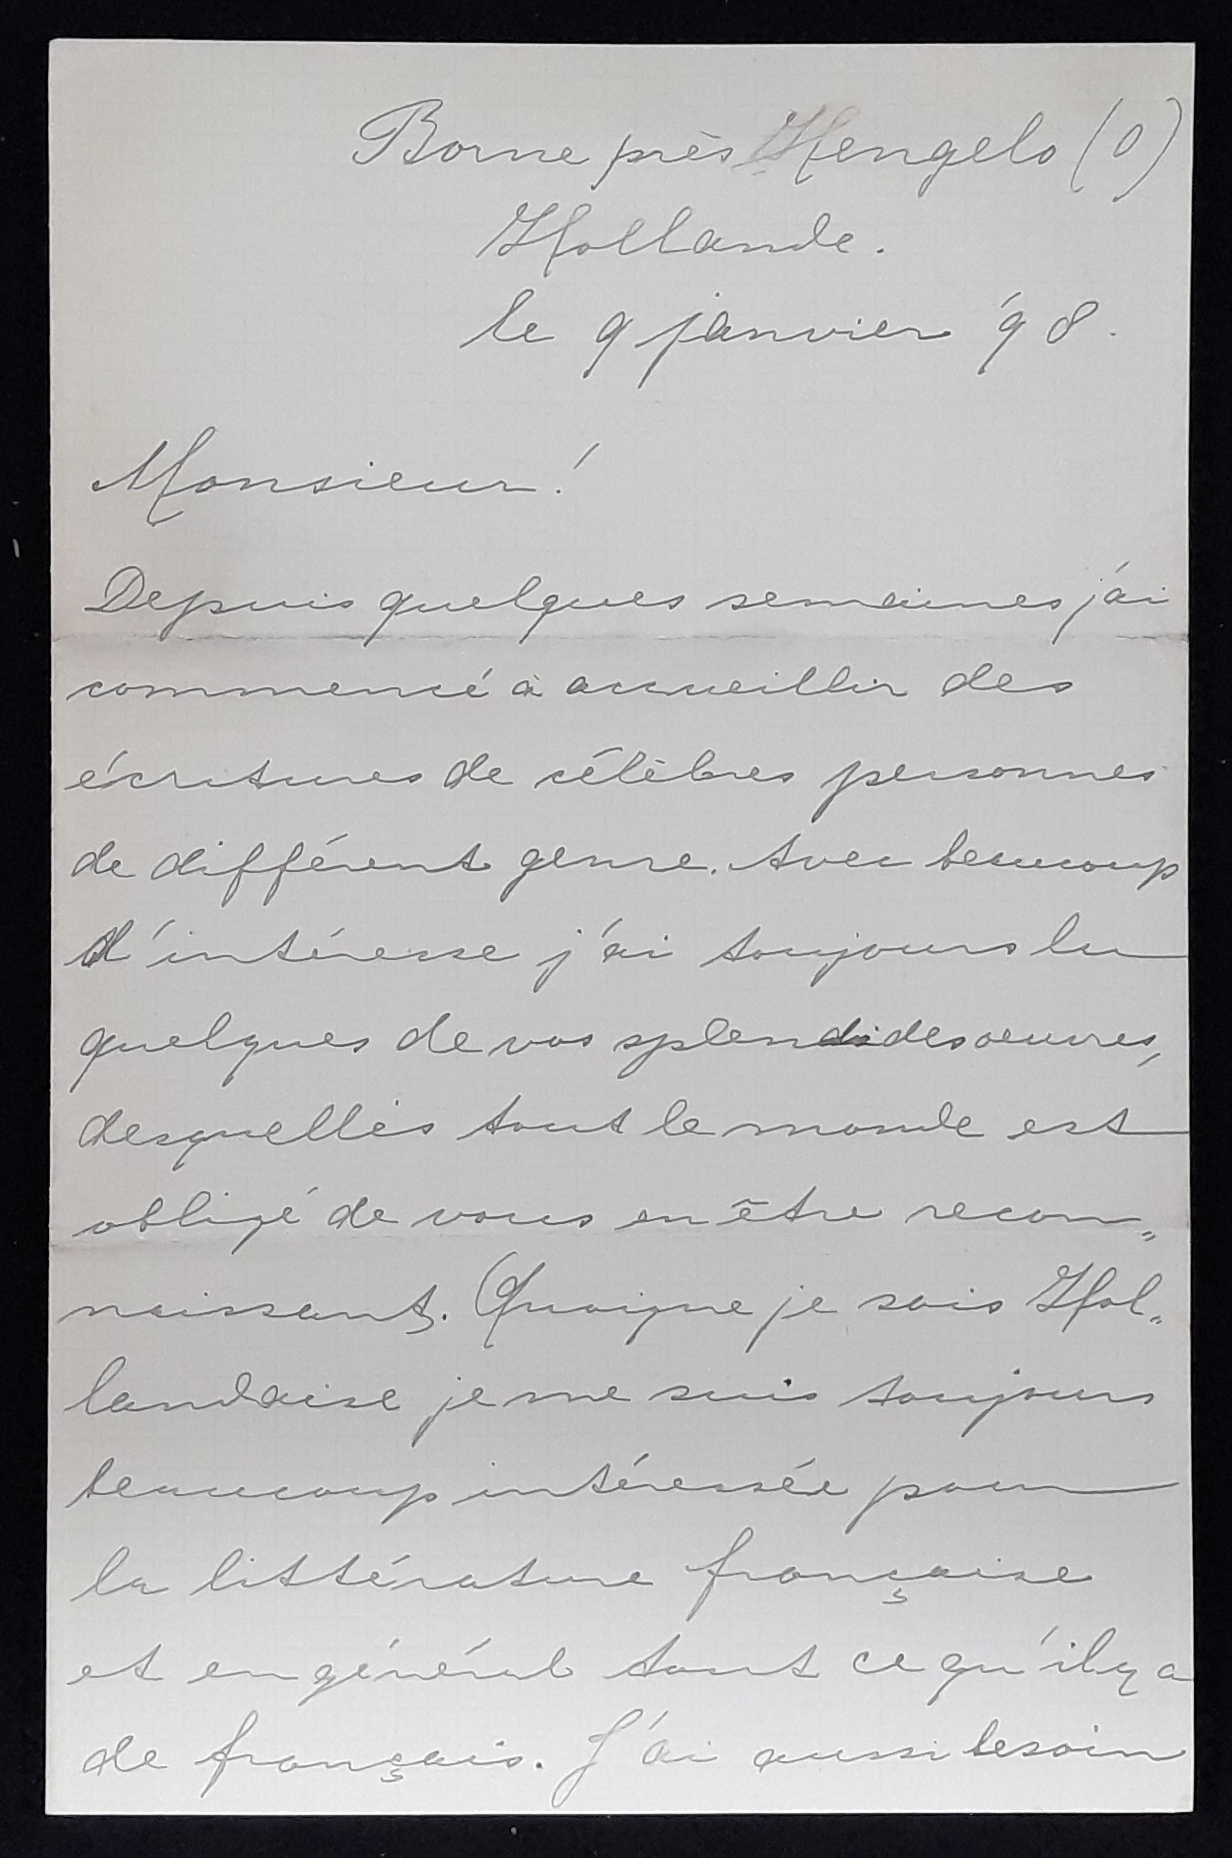 Borne près Hengelo (O)
Hollande.
le 9 janvier '98.
Monsieur!
Depuis quelques semaines j'ai
commencé à accueillir des
écritures de célèbres personnes
de différent genre. Avec beaucoup
d'intéresse j'ai toujours lu
quelques de vos splendides oeuvres,
desquelles tout le monde est
obligé de vous en être recon„
naissant. Quoique je sois Hol„
landaise je me suis toujours
beaucoup intéressée pour
la littérature française
et en général tout ce qu'il y a
de français. J'ai aussi besoin